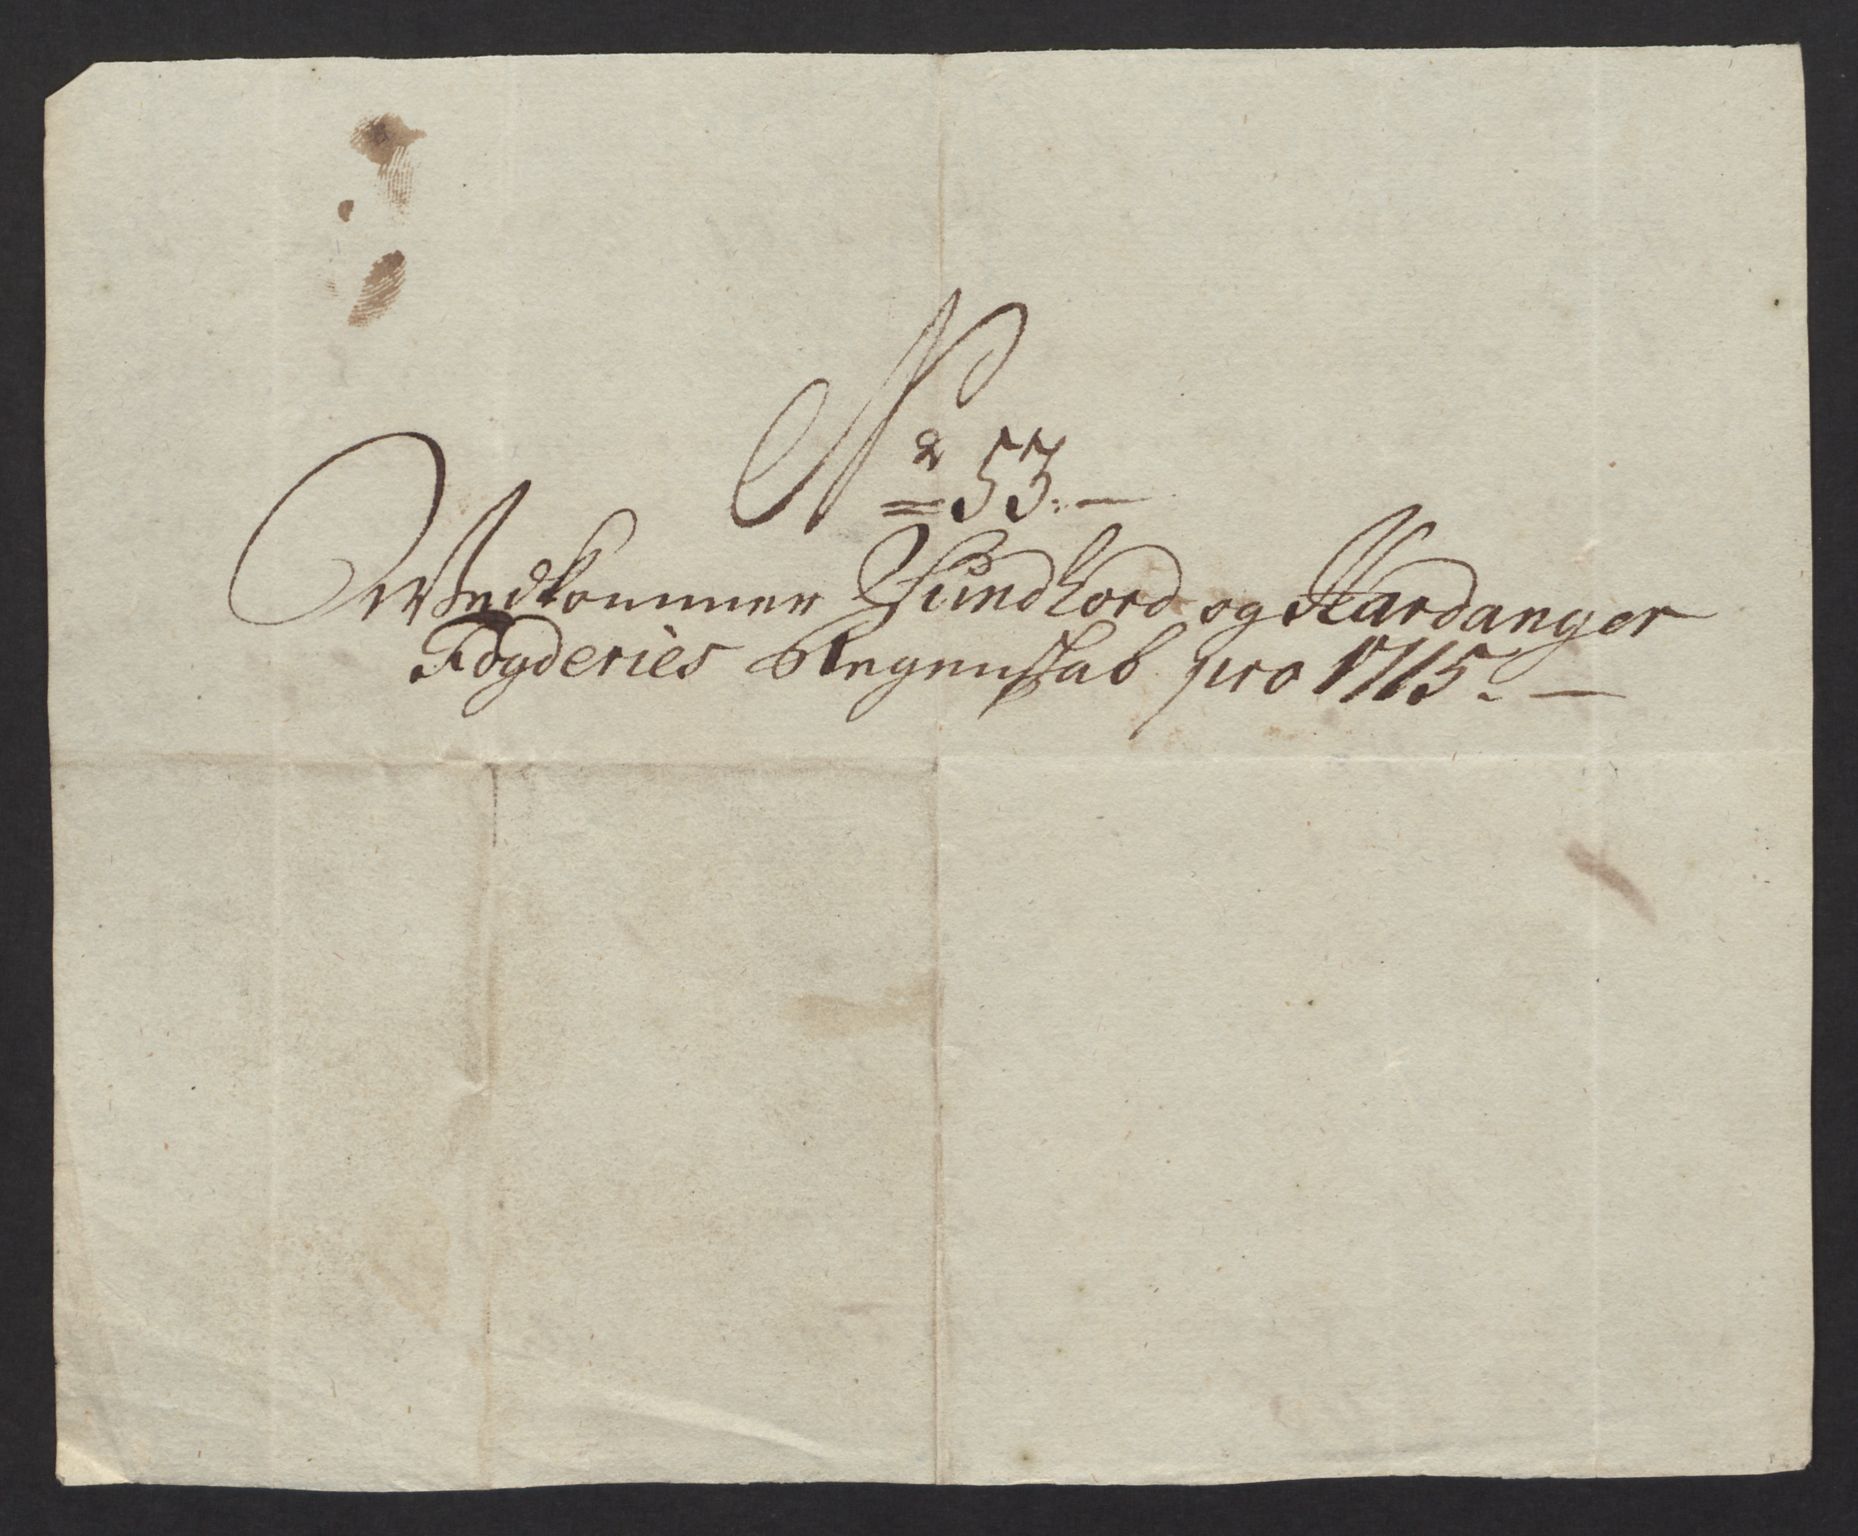 No 53.
Vedkommer Sundhord og Hardanger
Fogderies Regenskab pro 1715.